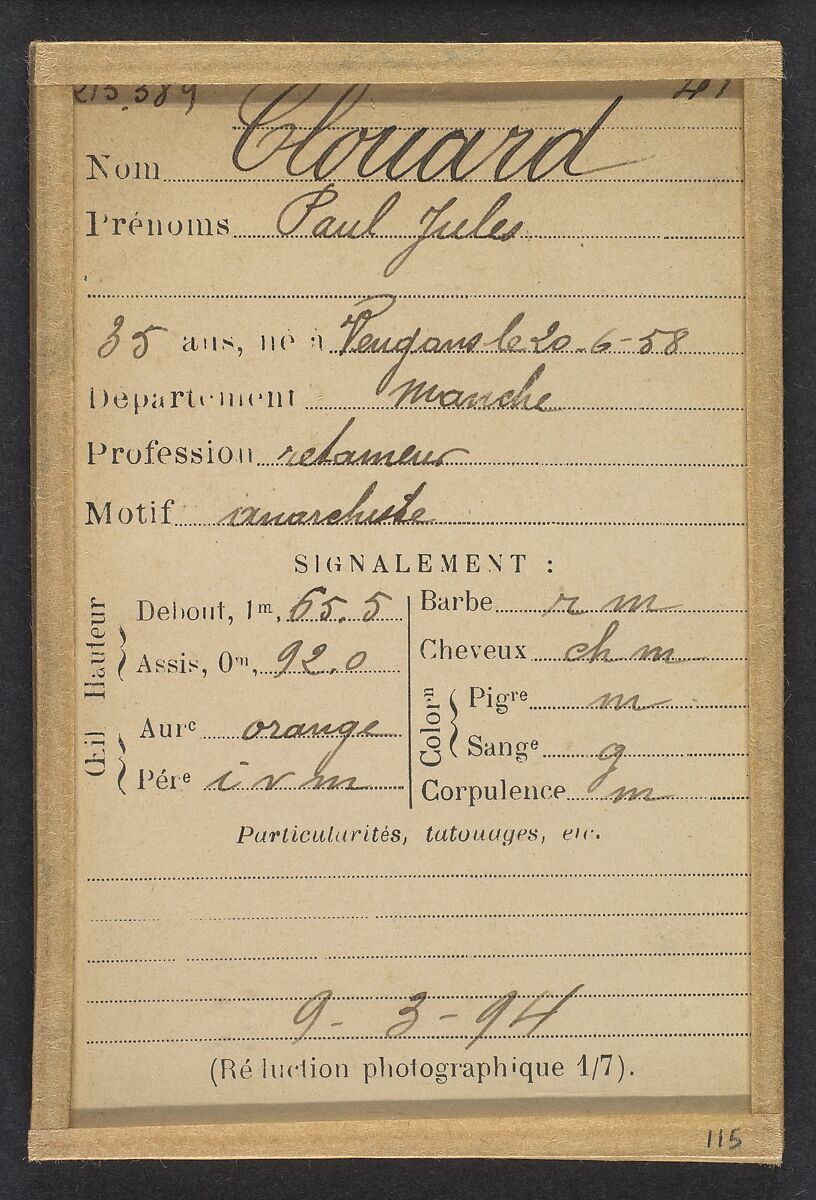 215.389 41
Nom Clouard
Prénoms Paul Jules
35 ans, né à Vengons le 20-6-58
Département Manche
Profession retameur
Motif anarchiste
SIGNALEMENT :
Hauteur
Debout, 1m, 65.5
Assis, 0m, 92.0
Œil
Aurᶜ orange
Périᵉ i v m
Barbe r m
Cheveux ch m
Colorⁿ
Pigʳᵉ m
Sangᵉ g
Corpulence m
Particularités, tatouages, etc.
9-3-94
(Réduction photographique 1/7).
115